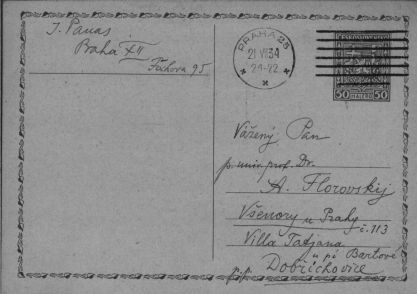 I. Panas
Praha XII
Fochova 95
PRAHA 25
21 VII 34
21-22
ČESKOSLOVENSKO
50 HALÉŘŮ 50
Vážený Pan
p. univ. prof. Dr.
A. Florovskij
Všenory u Prahy
č. 113
Villa Tatjana
u pí Bartové
Dobřichovice